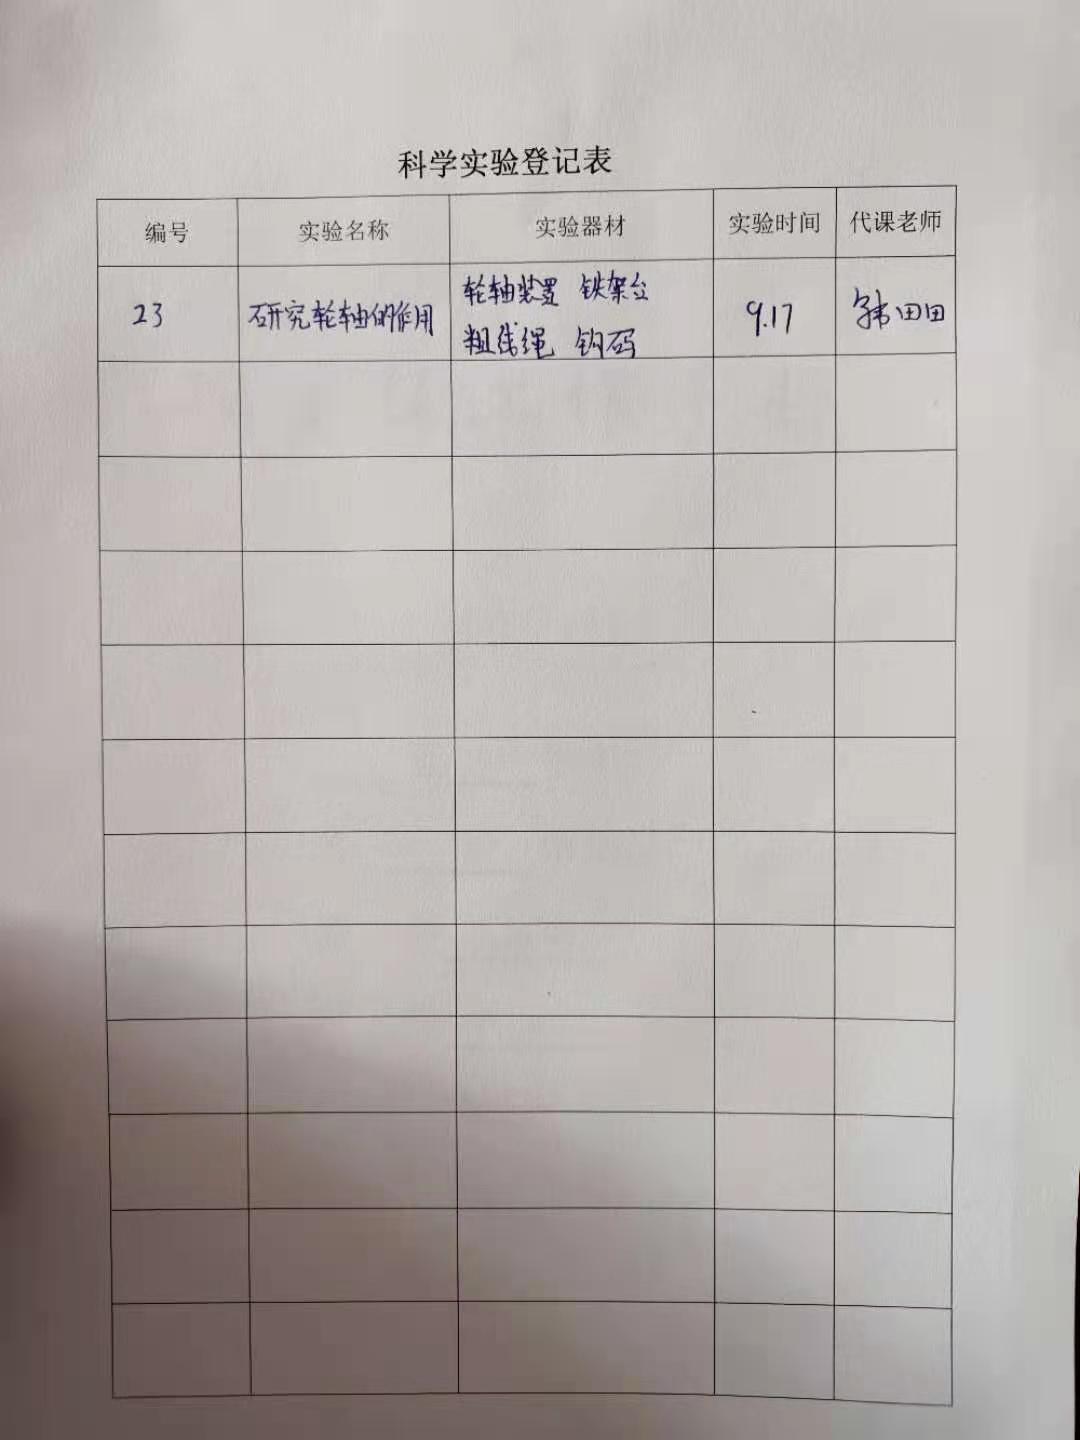 科学实验登记表
编号 实验名称 实验器材 实验时间 代课老师
23 研究轮轴的作用 轮轴装置 铁架台 9.17 韩田田
粗线绳 钩码